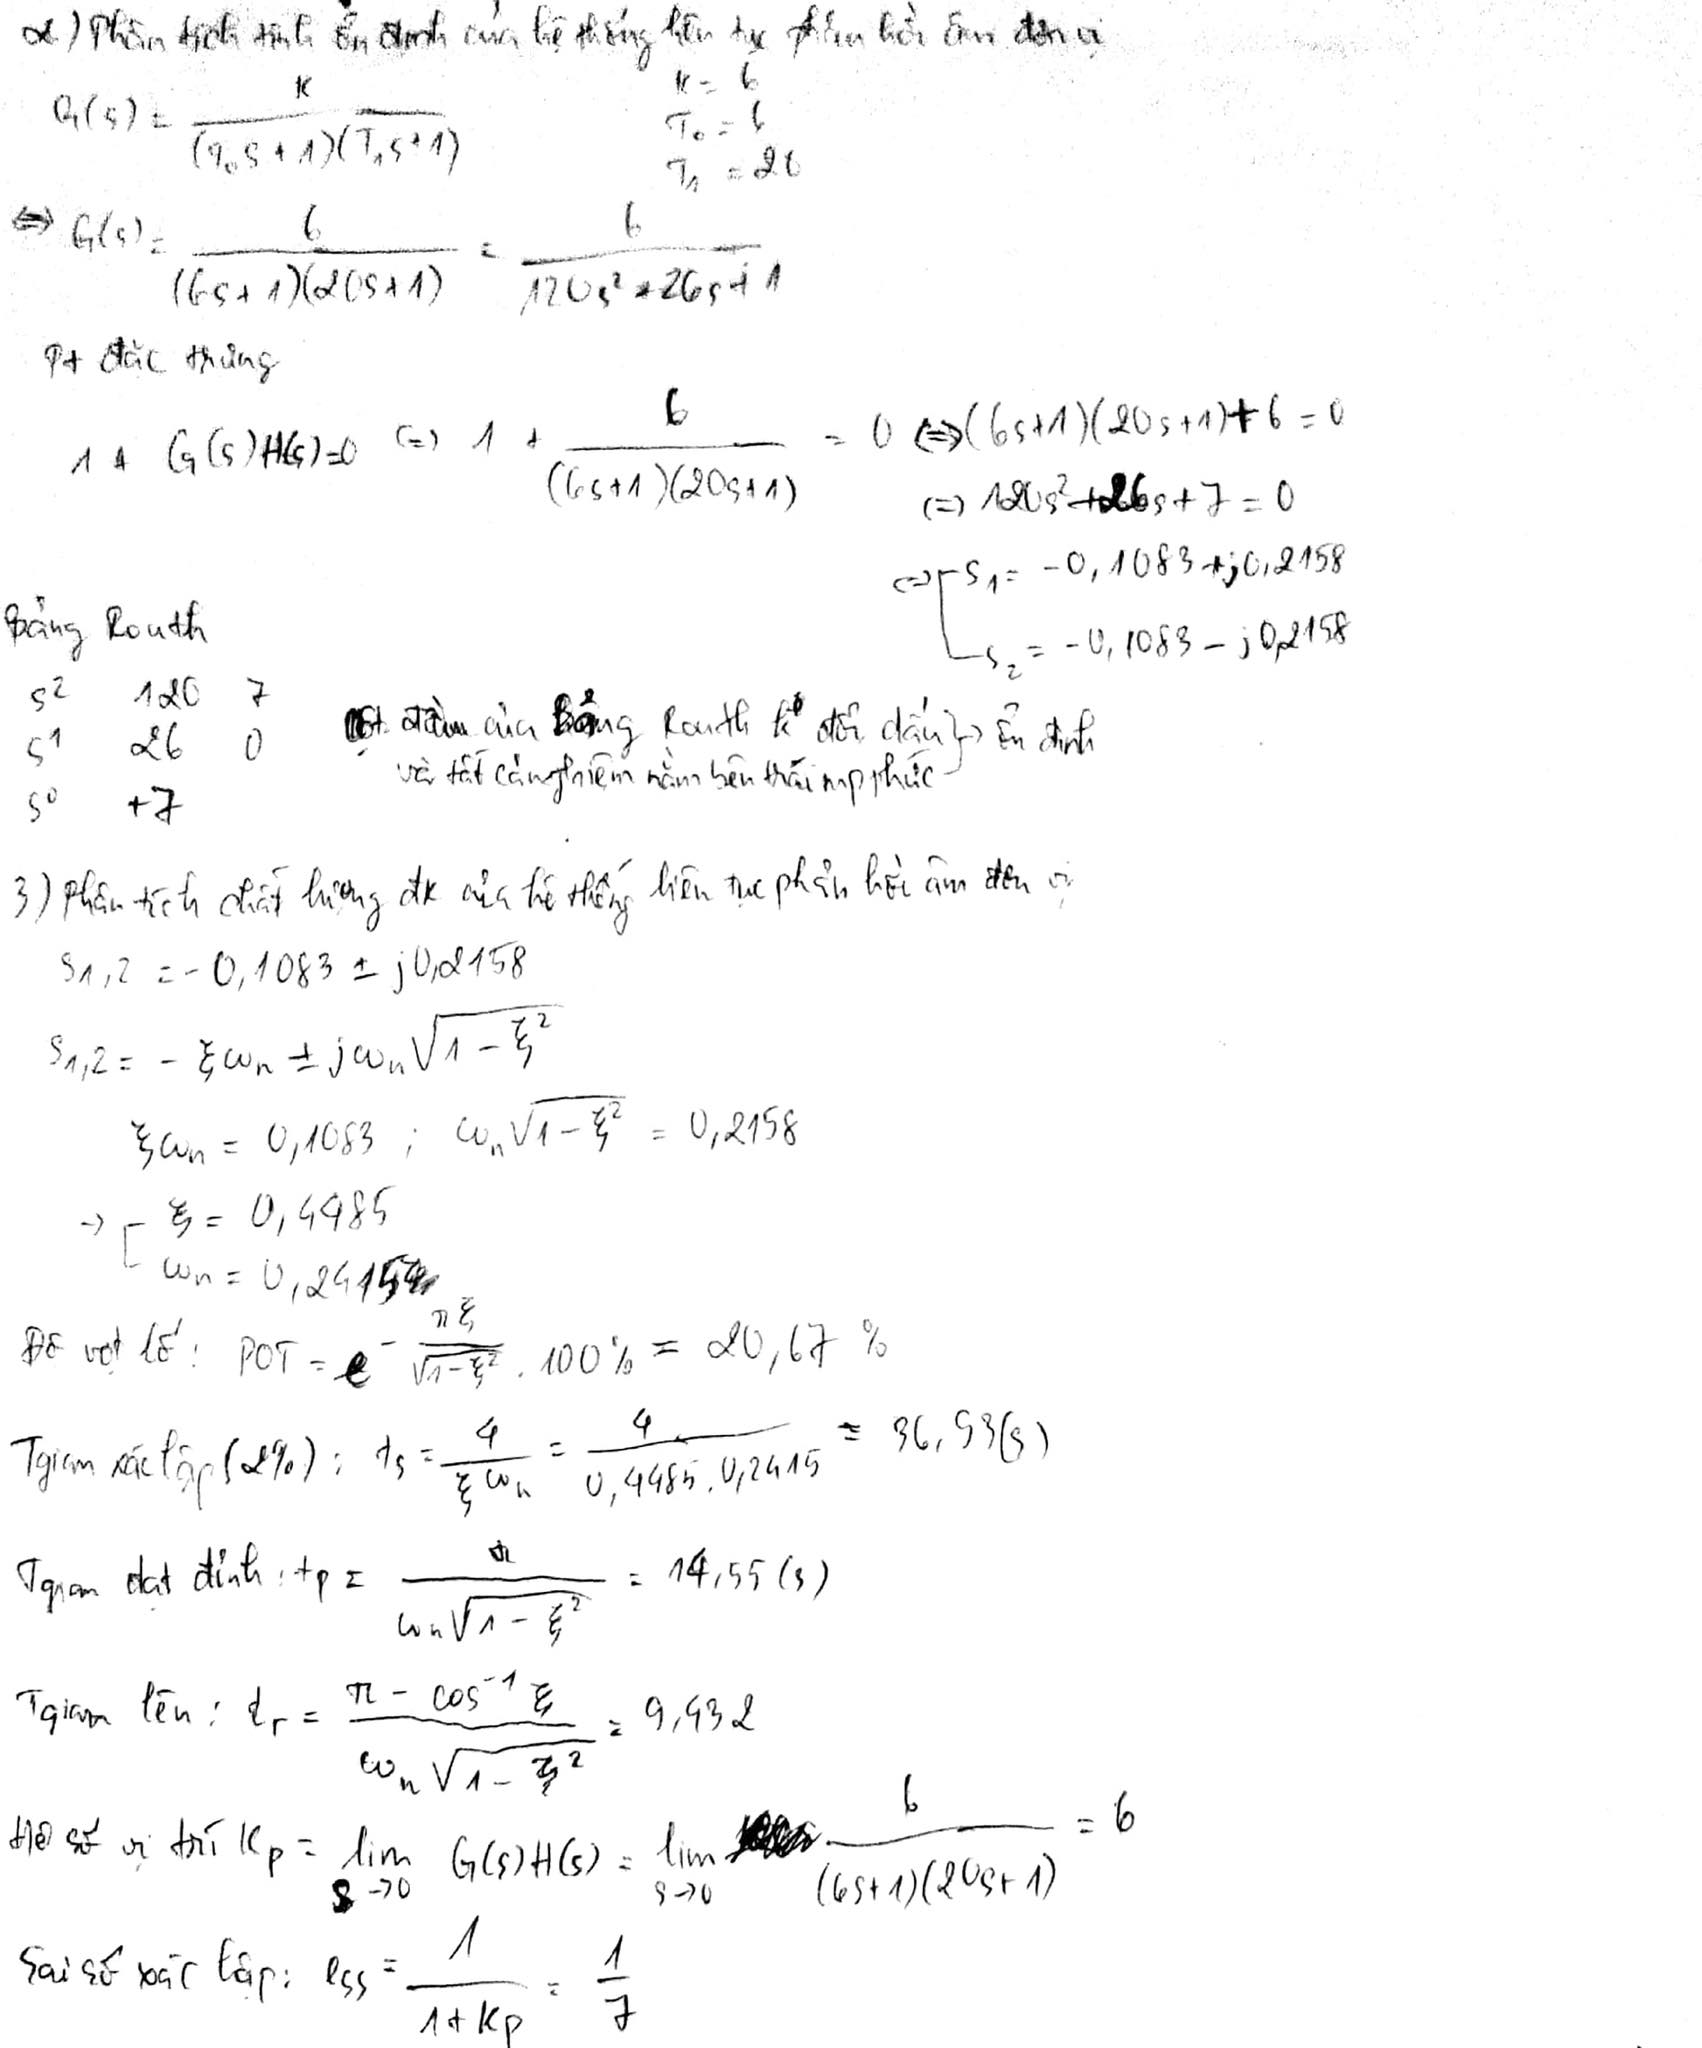 2) Phân tích tính ổn định của hệ thống liên tục phản hồi âm đơn vị
G(s) = K / (T₀s + 1)(T₁s + 1)
K = 6
T₀ = 6
T₁ = 20
⇔ G(s) = 6 / (6s + 1)(20s + 1) = 6 / 120s² + 26s + 1
Pt đặc trưng
1 + G(s)H(s) = 0 (=) 1 + 6 / (6s+1)(20s+1) = 0 ⇔ (6s+1)(20s+1) + 6 = 0
(=) 120s² + 26s + 7 = 0
⇔ s₁ = -0,1083 + j0,2158
s₂ = -0,1083 - j0,2158
Bảng Routh
s² 120 7
s¹ 26 0
s⁰ +7
Cột đầu của Bảng Routh k° đổi dấu } → ổn định
và tất cả nghiệm nằm bên trái mp phức
3) Phân tích chất lượng đk của hệ thống liên tục phản hồi âm đơn vị
s1,2 = -0,1083 ± j0,2158
s1,2 = - ξωn ± jωn√1 - ξ²
ξωn = 0,1083 ; ωn√1 - ξ² = 0,2158
→ ξ = 0,4485
ωn = 0,2415
Độ vọt lố : POT = e^- πξ / √1-ξ² . 100% = 20,67 %
Tgian xác lập (2%) : ts = 4 / ξωn = 4 / 0,4485.0,2415 = 36,93(s)
Tgian đạt đỉnh : tp = π / ωn√1 - ξ² = 14,55 (s)
Tgian lên : tr = π - cos⁻¹ ξ / ωn√1 - ξ² = 9,432
Hệ số vị trí Kp = lim s→0 G(s)H(s) = lim s→0 6 / (6s+1)(20s+1) = 6
Sai số xác lập : ess = 1 / 1 + Kp = 1 / 7